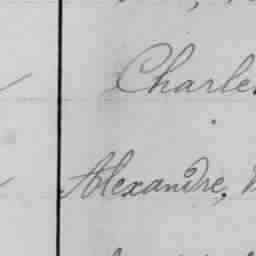 Charles
Alexandre,